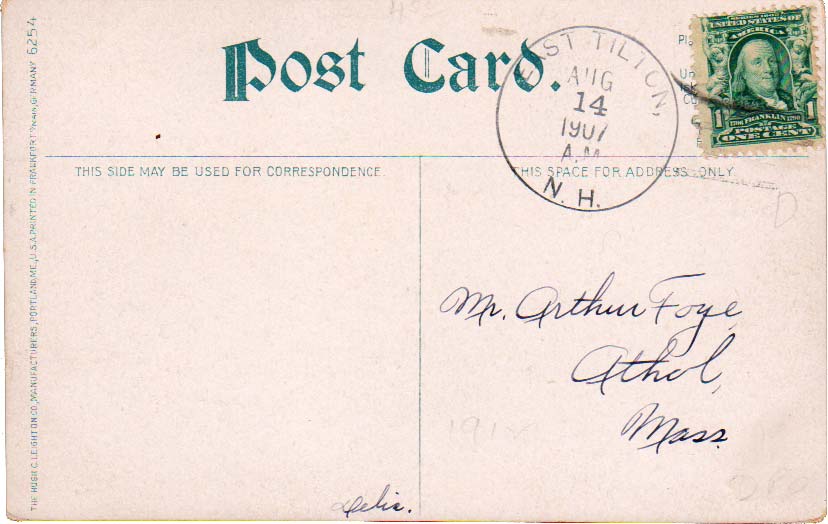 Post Card.
EAST TILTON,
AUG
14
1907
A.M.
N. H.
SERIES 1902
UNITED STATES OF
AMERICA
1706 FRANKLIN 1790
1 1
POSTAGE
ONE CENT
THIS SIDE MAY BE USED FOR CORRESPONDENCE.
THIS SPACE FOR ADDRESS ONLY.
Mr. Arthur Foye,
Athol,
Mass.
Delia.
THE HUGH C. LEIGHTON CO., MANUFACTURERS, PORTLAND, ME., U.S.A. PRINTED IN FRANKFORT O/MAIN, GERMANY 6254